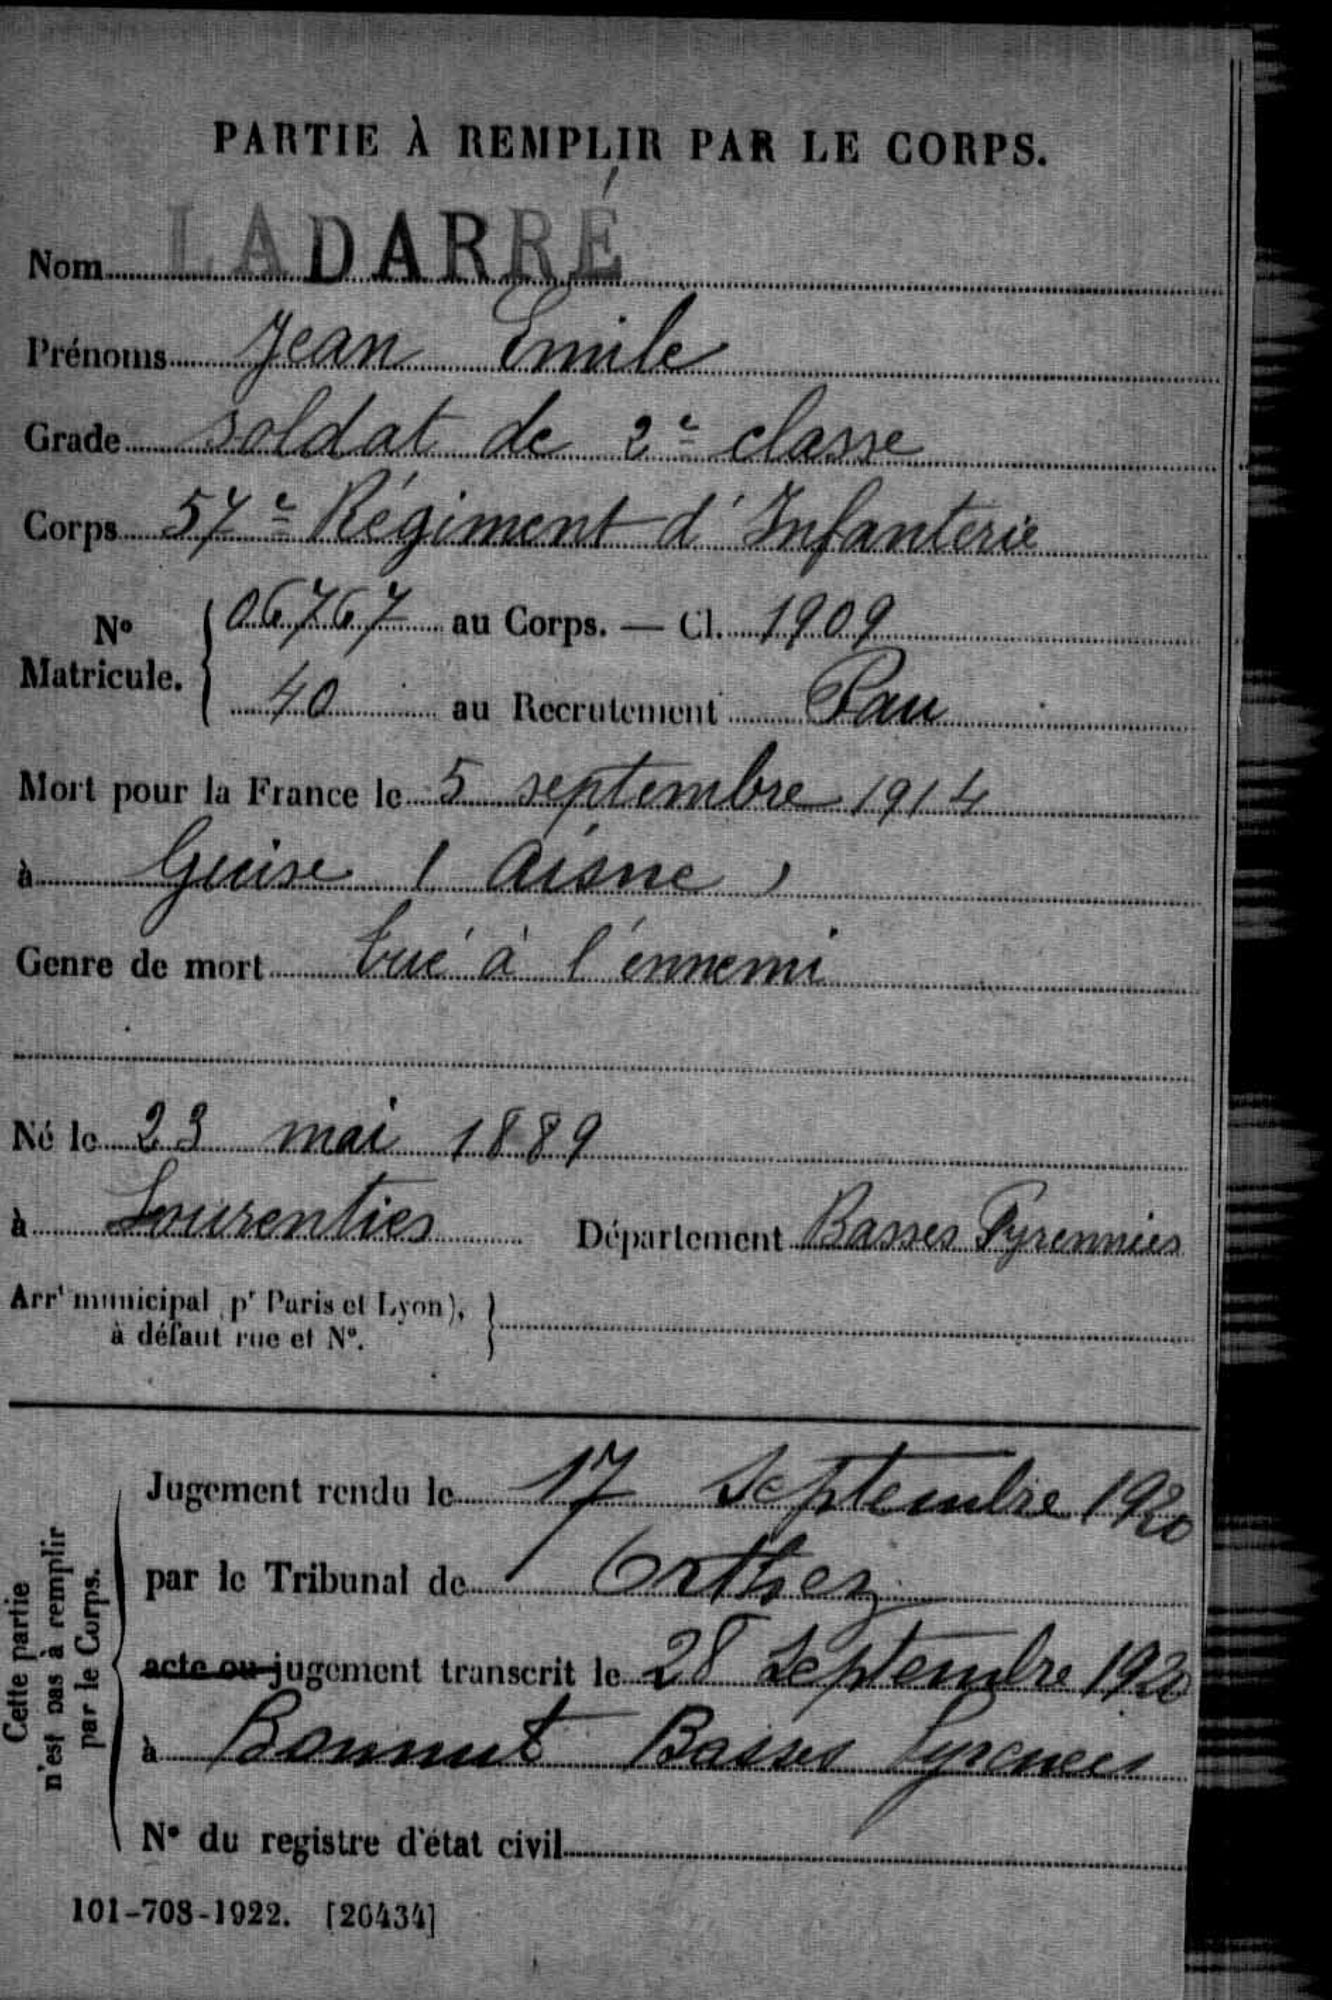 PARTIE À REMPLIR PAR LE CORPS.
Nom LADARRÉ
Prénoms Jean Emile
Grade soldat de 2e classe
Corps 57e Régiment d'Infanterie
No Matricule. { 06767 au Corps. — Cl. 1909
40 au Recrutement Pau
Mort pour la France le 5 septembre 1914
à Guise (Aisne)
Genre de mort tué à l'ennemi
Né le 23 mai 1889
à Lourenties Département Basses Pyrennées
Arrt municipal pr Paris et Lyon), à défaut rue et No. }
Cette partie n'est pas à remplir par le Corps.
Jugement rendu le 17 Septembre 1920
par le Tribunal de Orthez
acte ou jugement transcrit le 28 Septembre 1920
à Bonnut Basses Pyrenees
No du registre d'état civil
101-708-1922. [26434]